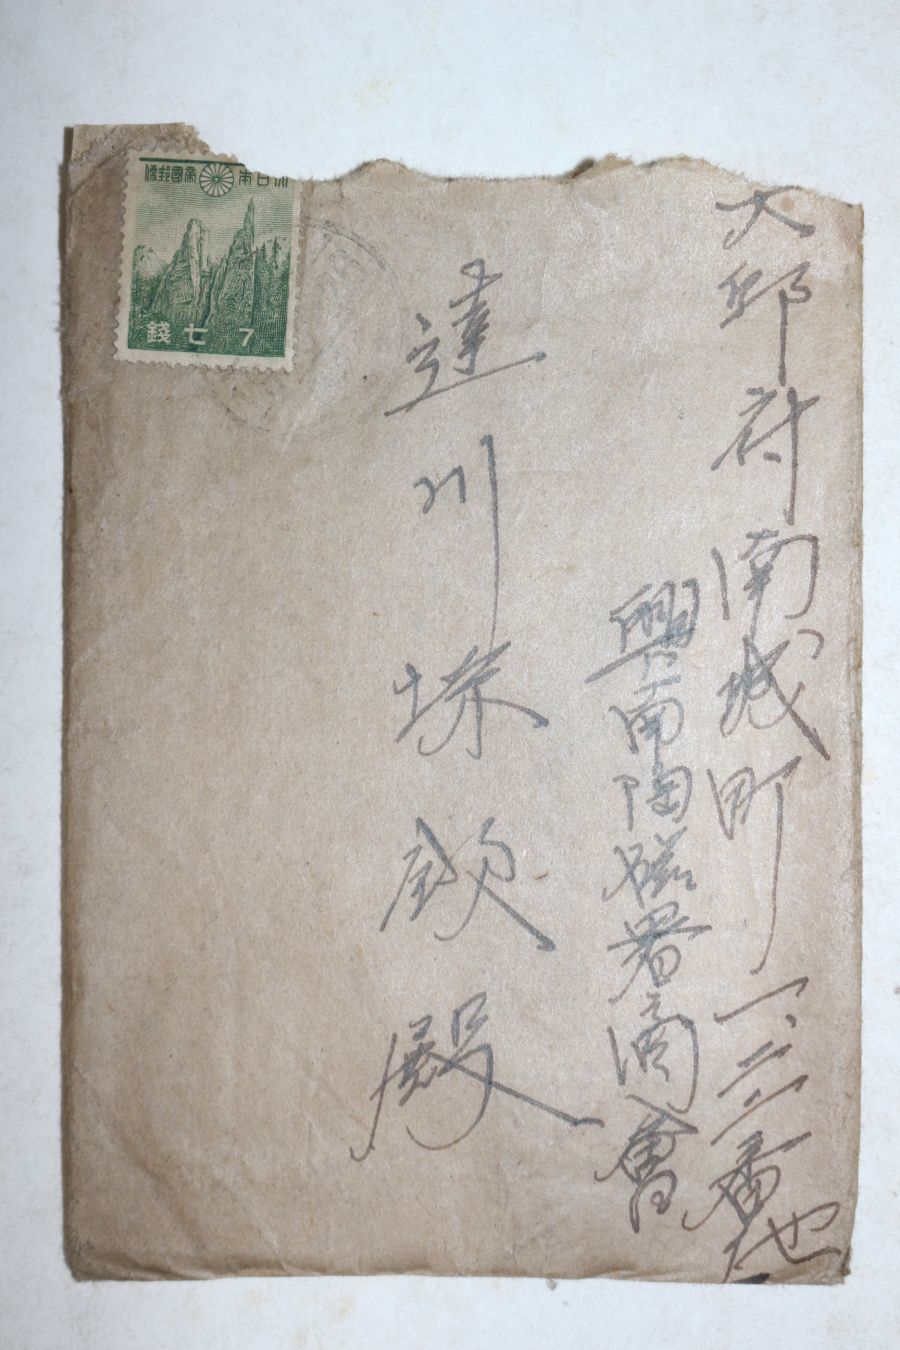 大邱府南城町一、二三番地
興南陶磁器商會
達川珠欽殿
大日本帝國郵便
錢七 7